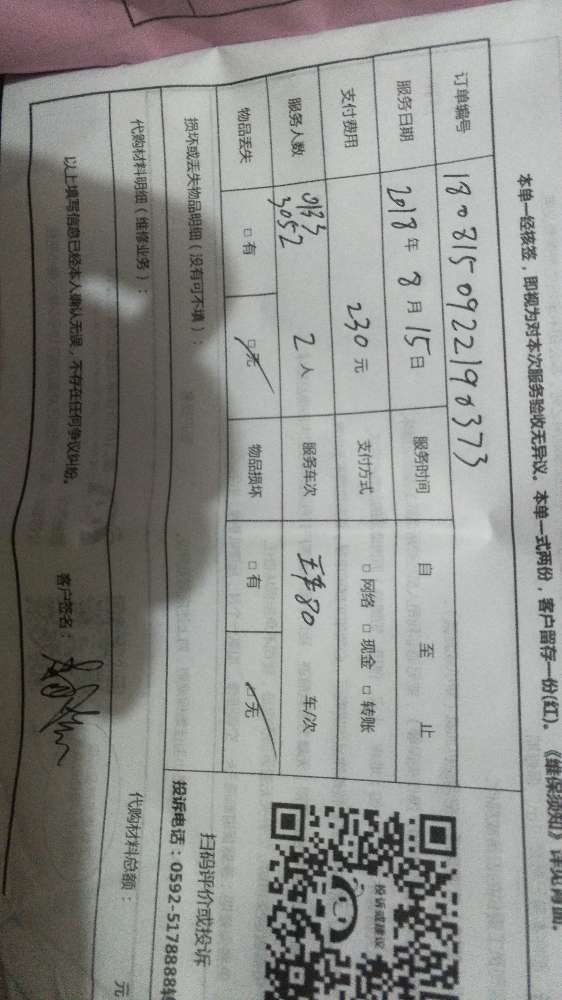 本单一经核签，即视为对本次服务验收无异议。本单一式两份，客户留存一份(红)。《维保须知》详见背面。
订单编号 1808150922190373
服务日期 2018年 8月 15日 服务时间 自 至 止
支付费用 230元 支付方式 □网络 □现金 □转账
服务人数 3052 2人 服务车次 80 车/次
物品丢失 □有 □无 物品损坏 □有 □无
损坏或丢失物品明细（没有可不填）：
代购材料明细（维修业务）： 代购材料总额： 元
以上填写信息已经本人确认无误，不存在任何争议纠纷。 客户签名：
投诉或建议
扫码评价或投诉
投诉电话：0592-5178888转